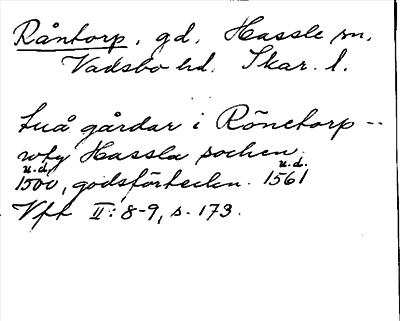 Råntorp, gd, Hassle sn,
Vadsbo hd. Skar. l.
tuå gårdar i Rönetorp --
wty Hassla sochen
u.d. u.d.
1500, godsförteckn. 1561
Vft II: 8-9, s. 173.